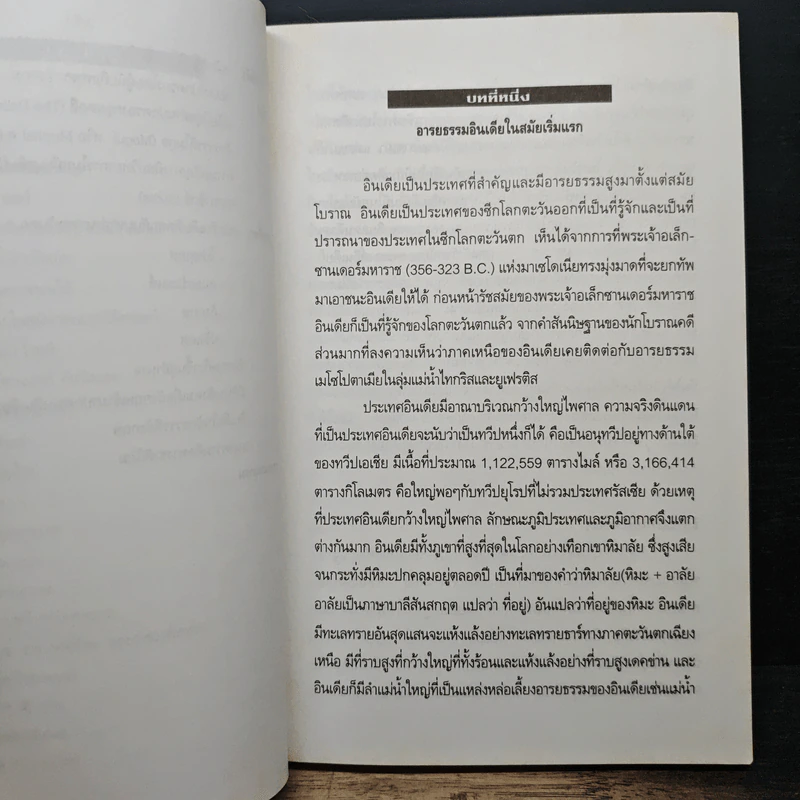 บทที่หนึ่ง
อารยธรรมอินเดียในสมัยเริ่มแรก
อินเดียเป็นประเทศที่สำคัญและมีอารยธรรมสูงมาตั้งแต่สมัย
โบราณ อินเดียเป็นประเทศของซีกโลกตะวันออกที่เป็นที่รู้จักและเป็นที่
ปรารถนาของประเทศในซีกโลกตะวันตก เห็นได้จากการที่พระเจ้าอเล็ก-
ซานเดอร์มหาราช (356-323 B.C.) แห่งมาเซโดเนียทรงมุ่งมาดที่จะยกทัพ
มาเอาชนะอินเดียให้ได้ ก่อนหน้ารัชสมัยของพระเจ้าอเล็กซานเดอร์มหาราช
อินเดียก็เป็นที่รู้จักของโลกตะวันตกแล้ว จากคำสันนิษฐานของนักโบราณคดี
ส่วนมากที่ลงความเห็นว่าภาคเหนือของอินเดียเคยติดต่อกับอารยธรรม
เมโซโปตาเมียในลุ่มแม่น้ำไทกริสและยูเฟรติส
ประเทศอินเดียมีอาณาบริเวณกว้างใหญ่ไพศาล ความจริงดินแดน
ที่เป็นประเทศอินเดียจะนับว่าเป็นทวีปหนึ่งก็ได้ คือเป็นอนุทวีปอยู่ทางด้านใต้
ของทวีปเอเชีย มีเนื้อที่ประมาณ 1,122,559 ตารางไมล์ หรือ 3,166,414
ตารางกิโลเมตร คือใหญ่พอๆกับทวีปยุโรปที่ไม่รวมประเทศรัสเซีย ด้วยเหตุ
ที่ประเทศอินเดียกว้างใหญ่ไพศาล ลักษณะภูมิประเทศและภูมิอากาศจึงแตก
ต่างกันมาก อินเดียมีทั้งภูเขาที่สูงที่สุดในโลกอย่างเทือกเขาหิมาลัย ซึ่งสูงเสีย
จนกระทั่งมีหิมะปกคลุมอยู่ตลอดปี เป็นที่มาของคำว่าหิมาลัย(หิมะ + อาลัย
อาลัยเป็นภาษาบาลีสันสกฤต แปลว่า ที่อยู่) อันแปลว่าที่อยู่ของหิมะ อินเดีย
มีทะเลทรายอันสุดแสนจะแห้งแล้งอย่างทะเลทรายธาร์ทางภาคตะวันตกเฉียง
เหนือ มีที่ราบสูงที่กว้างใหญ่ที่ทั้งร้อนและแห้งแล้งอย่างที่ราบสูงเดคข่าน และ
อินเดียก็มีลำแม่น้ำใหญ่ที่เป็นแหล่งหล่อเลี้ยงอารยธรรมของอินเดียเช่นแม่น้ำ